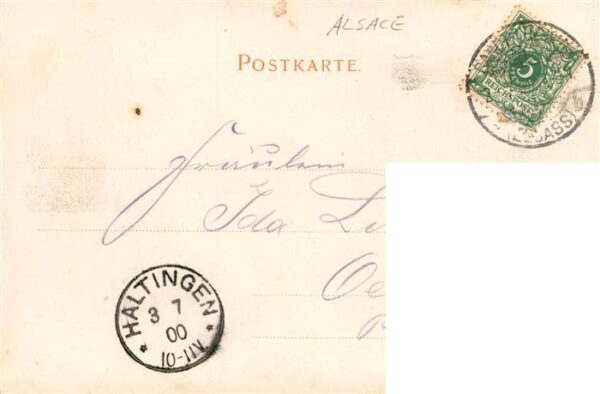 ALSACE
POSTKARTE.
5
REICHSPOST
(ELSASS)
Fräulein
Ida
HALTINGEN
3 7
00
10-11V.